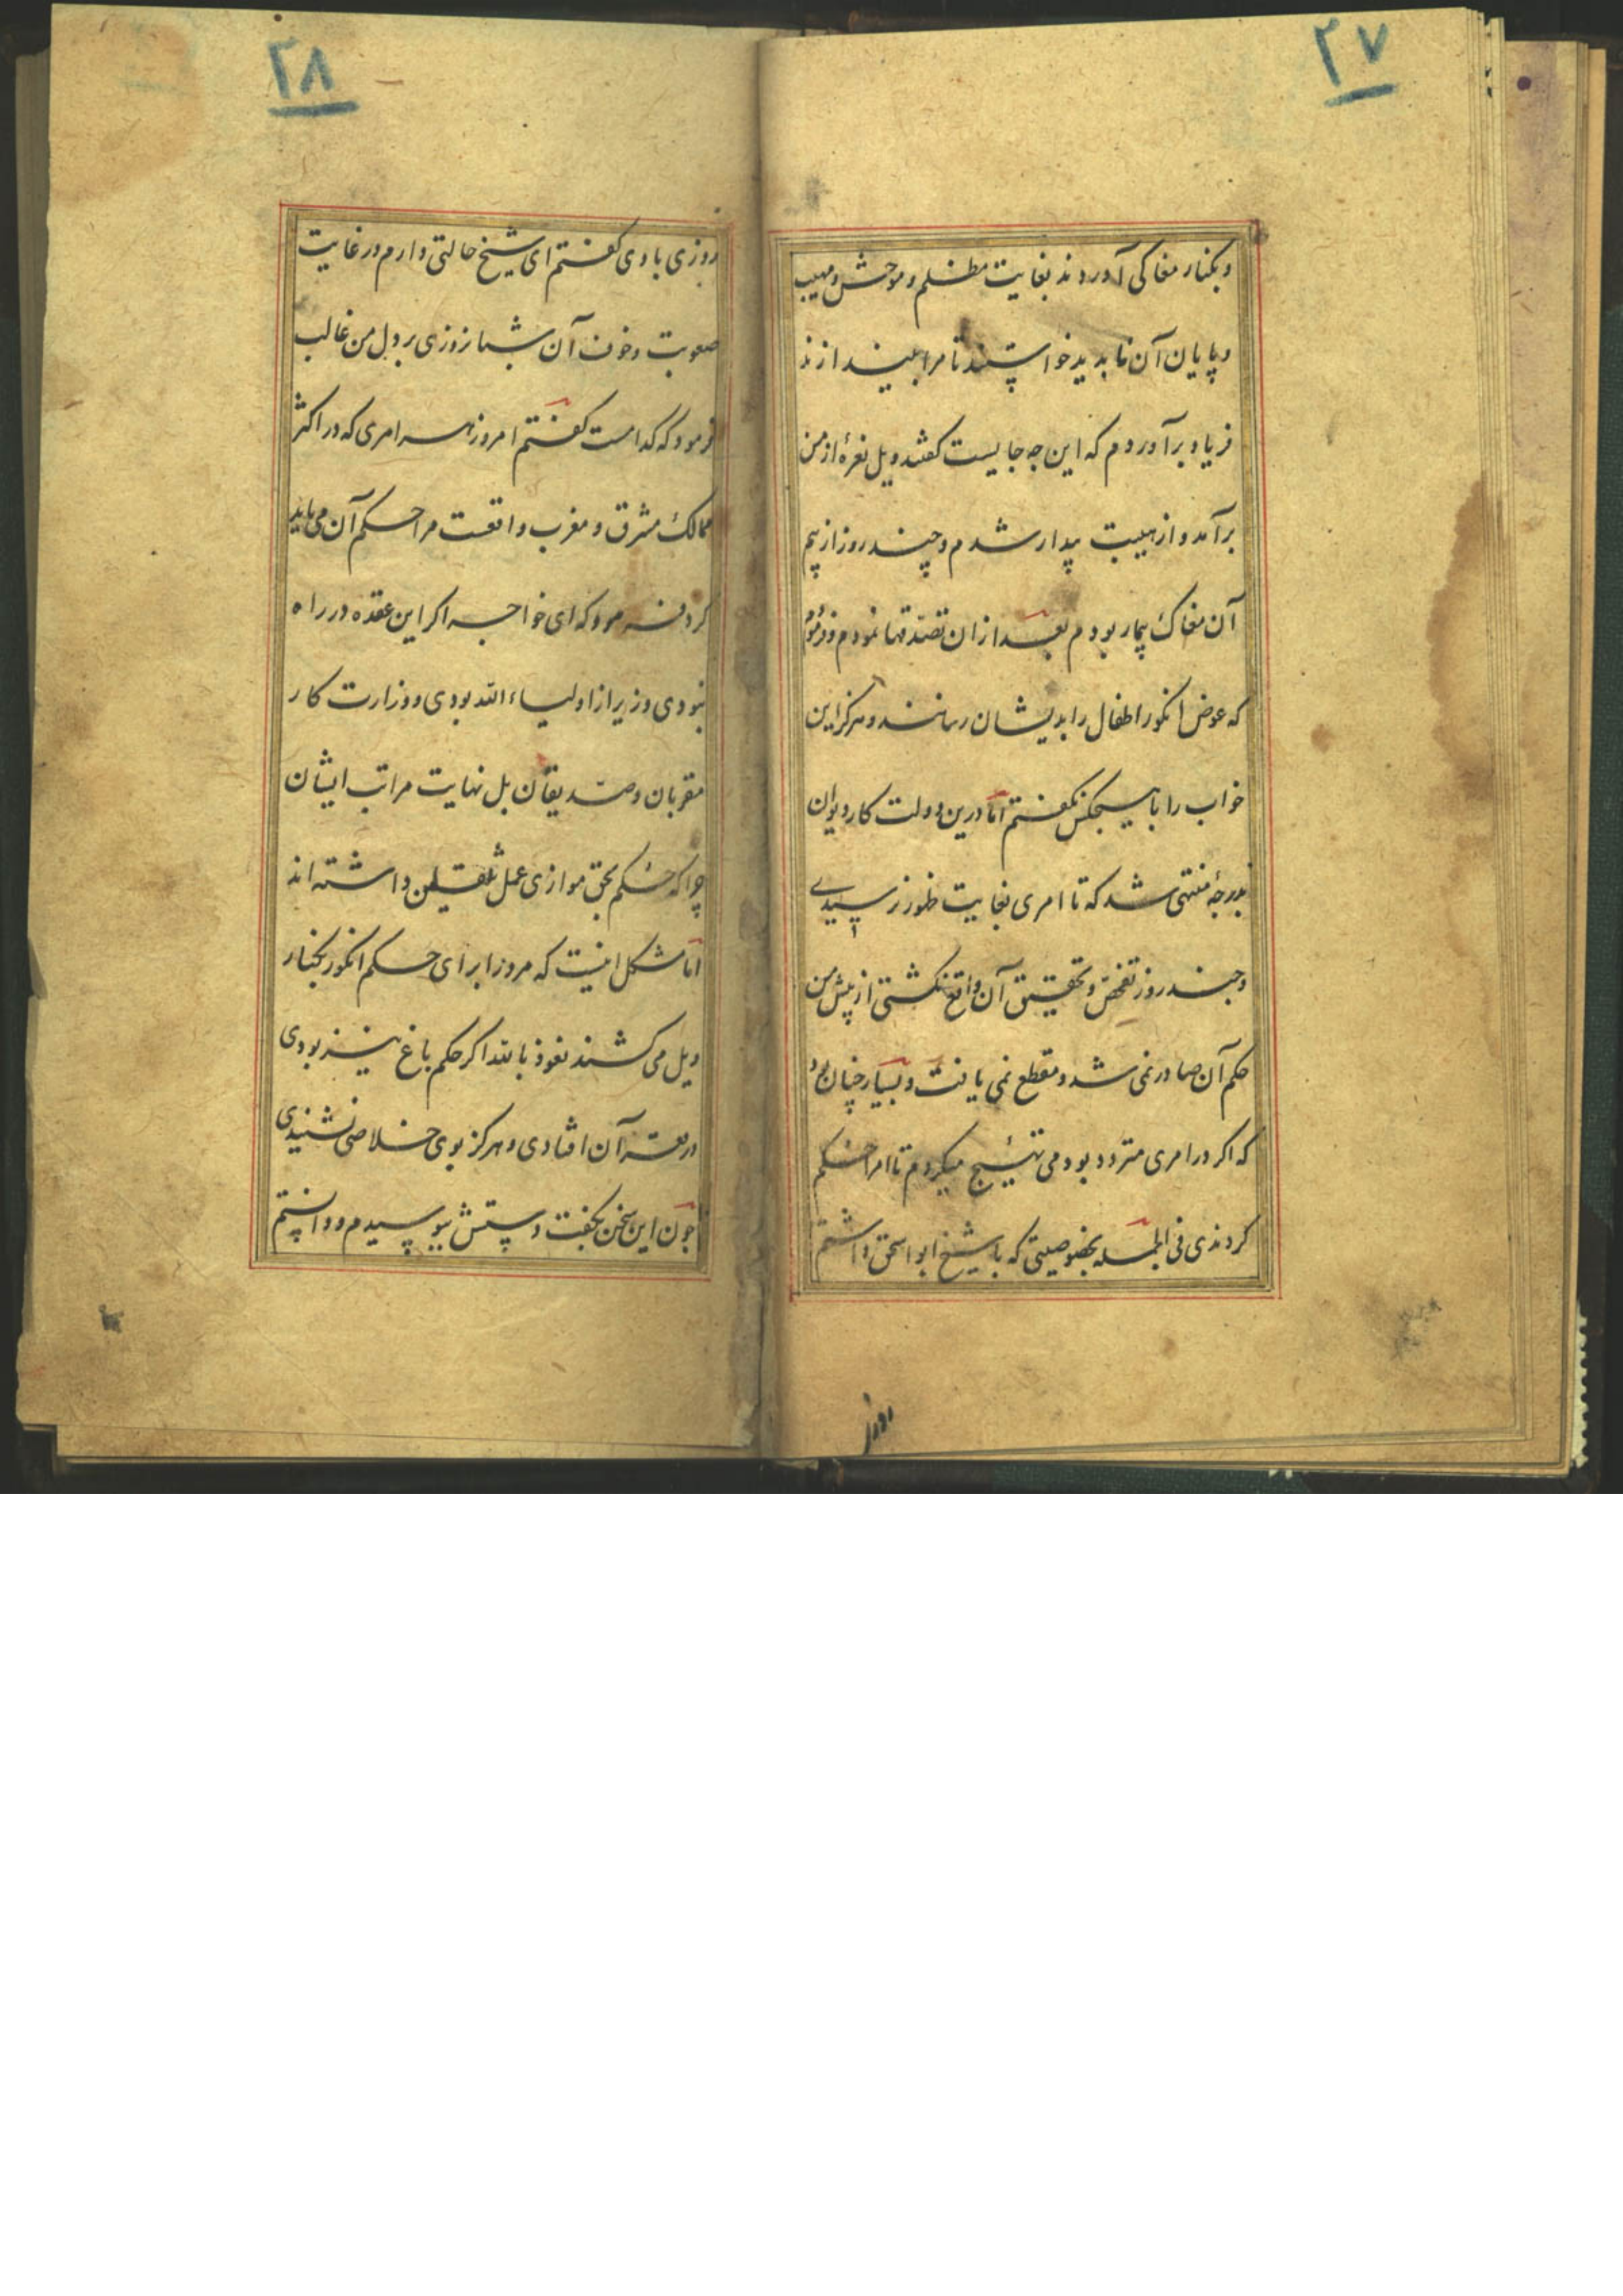 ۲۷
و بکنار مغاکی آوردند بغایت مظلم و موحش و مهیب
و پایان آن نا پدید خواستند تا مرا بیندازند
فریاد برآوردم که این چه جاییست گفتند ویل نعرهٔ از من
برآمد و از هیبت بیدار شدم و چند روز از بیم
آن مغاک بیمار بودم بعد از ان تصدقها نمودم و فرمود
که عوض انکور اطفال را بدیشان رسانند و هرکز این
خواب را با هیچکس نکفتم اما درین دولت کار دیوان
بدرجهٔ منتهی شد که تا امری بغایت ظهور نرسیدی
و چند روز تفحص و تحقیق آن واقع نکشتی از پیش من
حکم آن صادر نمی شد و مقطع نمی یافت و بسیار چنان بود
که اکر در امری متردد بودمی تهییج میکردم تا امرا حکم
کردندی فی الجمله بخصوصیتی که با شیخ ابو اسحق داشتم
روزی
۲۸
روزی با وی کفتم ای شیخ حالتی دارم در غایت
صعوبت و خوف آن شبانروزی بر دل من غالب
فرمود که کدامست کفتم امروز هر امری که در اکثر
ممالک مشرق و مغرب واقعست مرا حکم آن می باید
کرد فرمود که ای خواجه اکر این عقده در راه
نبودی وزیر از اولیاء الله بودی و وزارت کار
مقربان و صدیقان بل نهایت مراتب ایشان
چرا که حکم بحق موازی عمل ثقلین داشته اند
اما مشکل اینست که مروز ابرای حکم انکور بکنار
ویل می کشند نعوذ بالله اکر حکم باغ نیز بودی
در قعر آن افتادی و هرکز بوی خلاصی نشنیدی
چون این سخن بکفت دستش ببوسیدم و دانستم